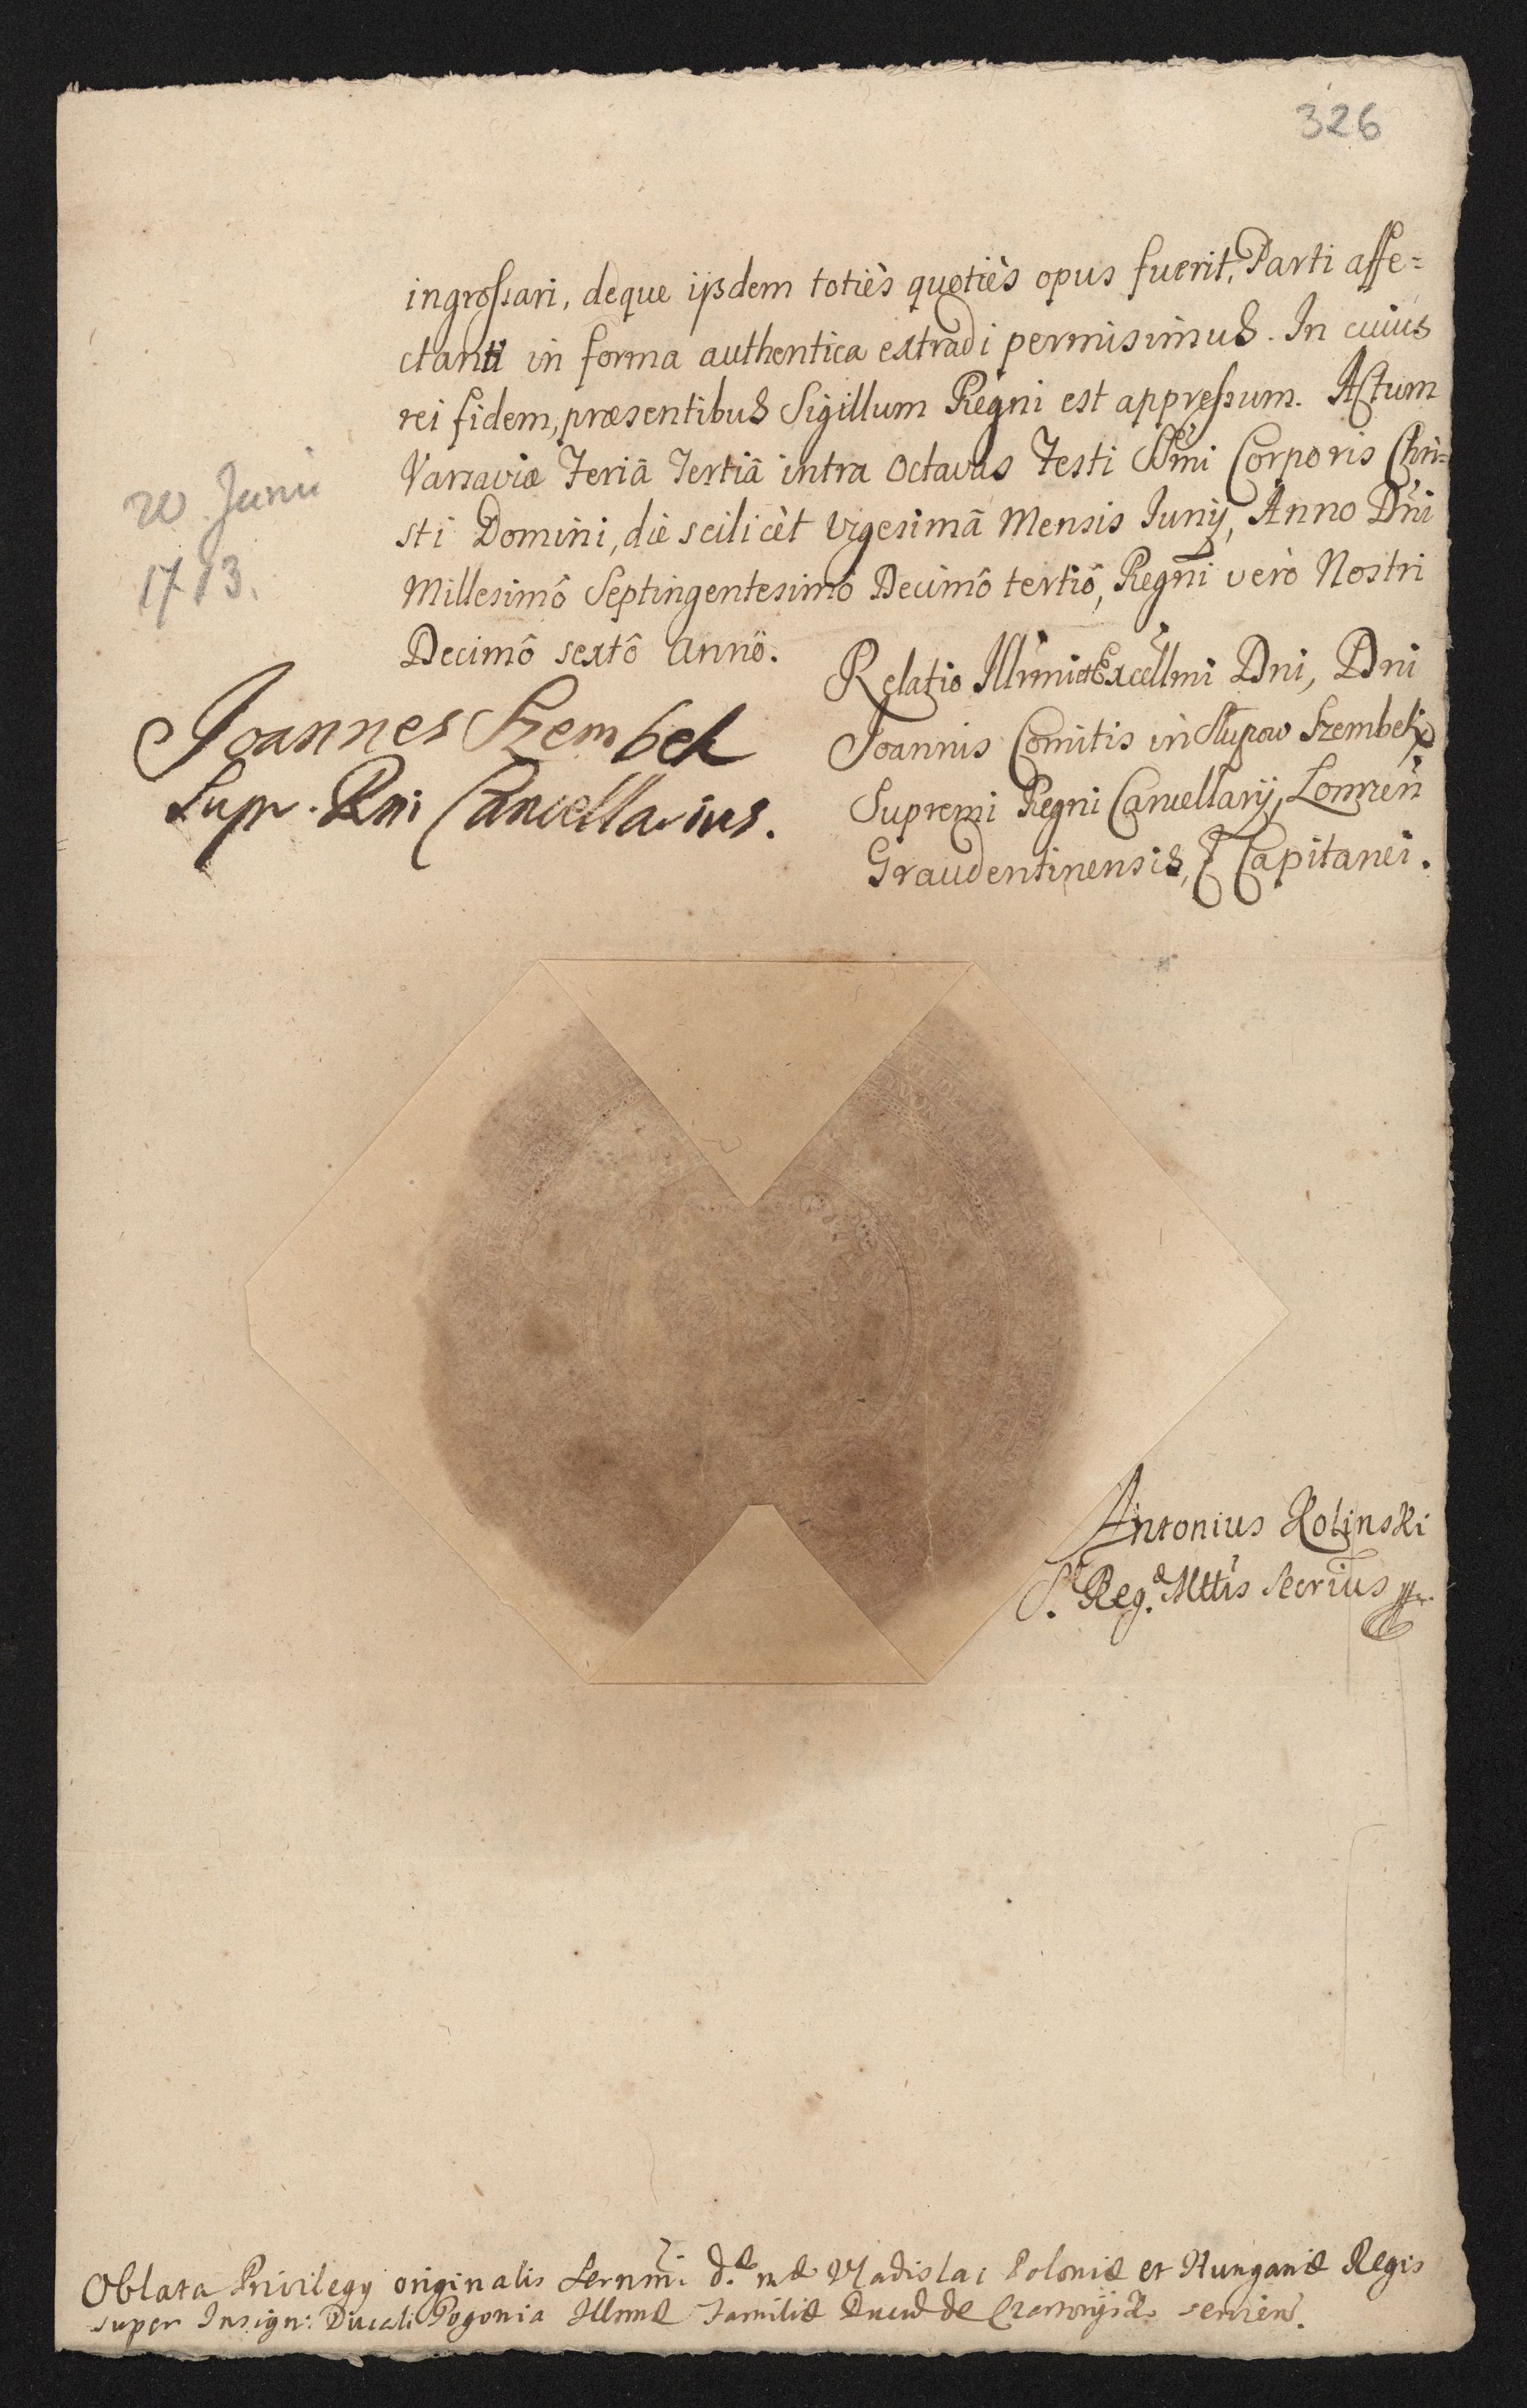 326
ingrossari, deque ijsdem totiès quotiès opus fuerit, Parti affe=
ctanti in forma authentica extradi permisimus. In cuius
rei fidem, præsentibus Sigillum Regni est appressum. Actum
Varsaviæ Feriâ Tertiâ intra Octavas Festi SSmi Corporis Chri=
sti Domini, die scilicèt Vigesimâ Mensis Iunij, Anno Dni
Millesimô Septingentesimô Decimô tertiô, Regni verò Nostri
Decimô sextô Annô.
20 Junii
1713.
Joannes Szembek
Supr. Rni Cancellarius.
Relatio Illrmi et Excellmi Dni, Dni
Joannis Comitis in Slupow Szembek
Supremi Regni Cancellarij, Lomzen
Graudentinensis, Capitanei.
Antonius Rolinski
S. Reg. Mttis Secrius
Oblata Privilegy originalis Sernmi Vladislai Poloniæ et Hungariæ Regis
super Insign: Ducali Pogonia Illmæ Familiæ Ducum de Czartoryisk servien.